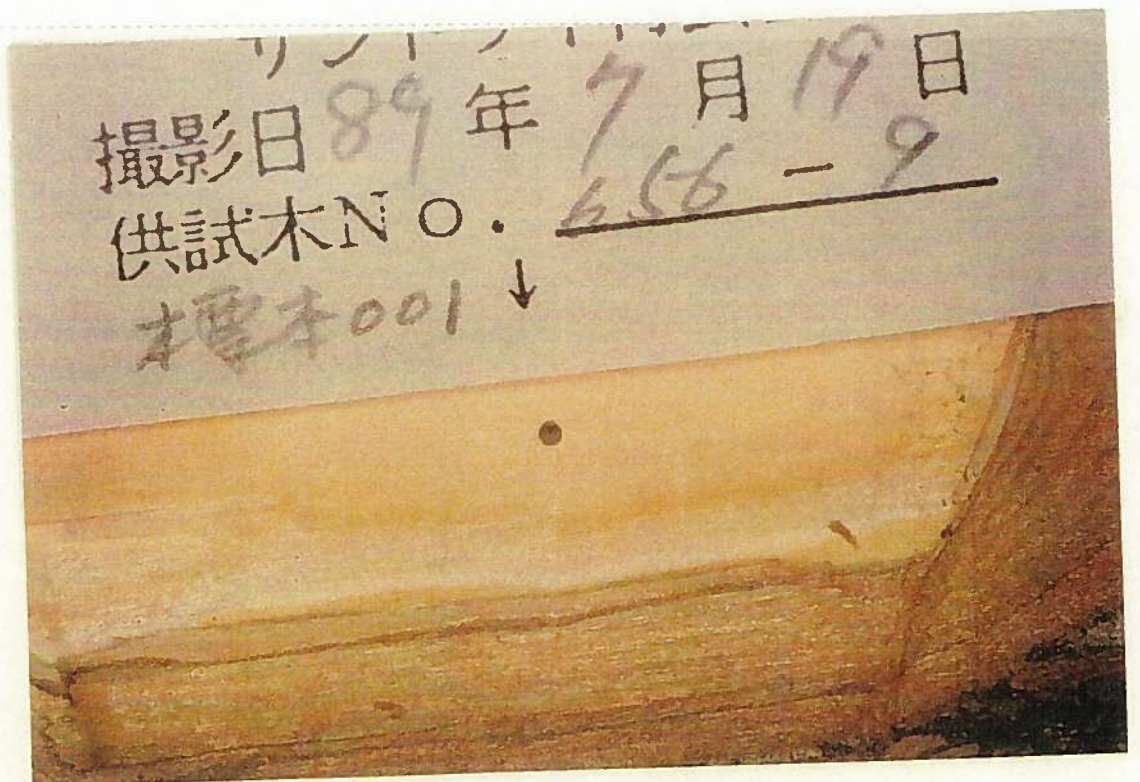 撮影日 89 年 7 月 19 日
供試木NO. 656-9
標本001 ↓